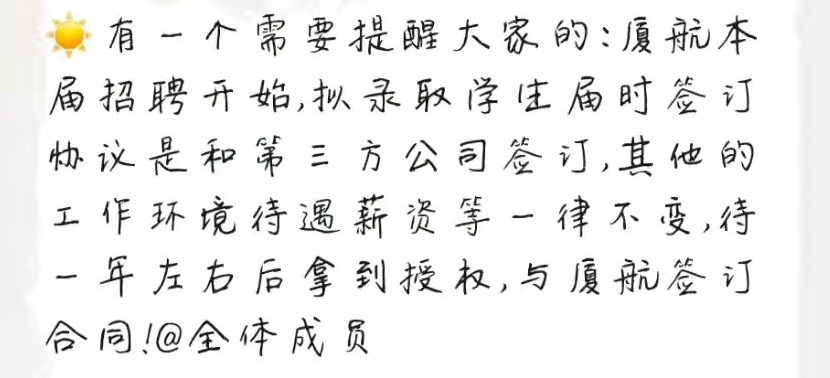 ☀️有一个需要提醒大家的:厦航本
届招聘开始,拟录取学生届时签订
协议是和第三方公司签订,其他的
工作环境待遇薪资等一律不变,待
一年左右后拿到授权,与厦航签订
合同!@全体成员